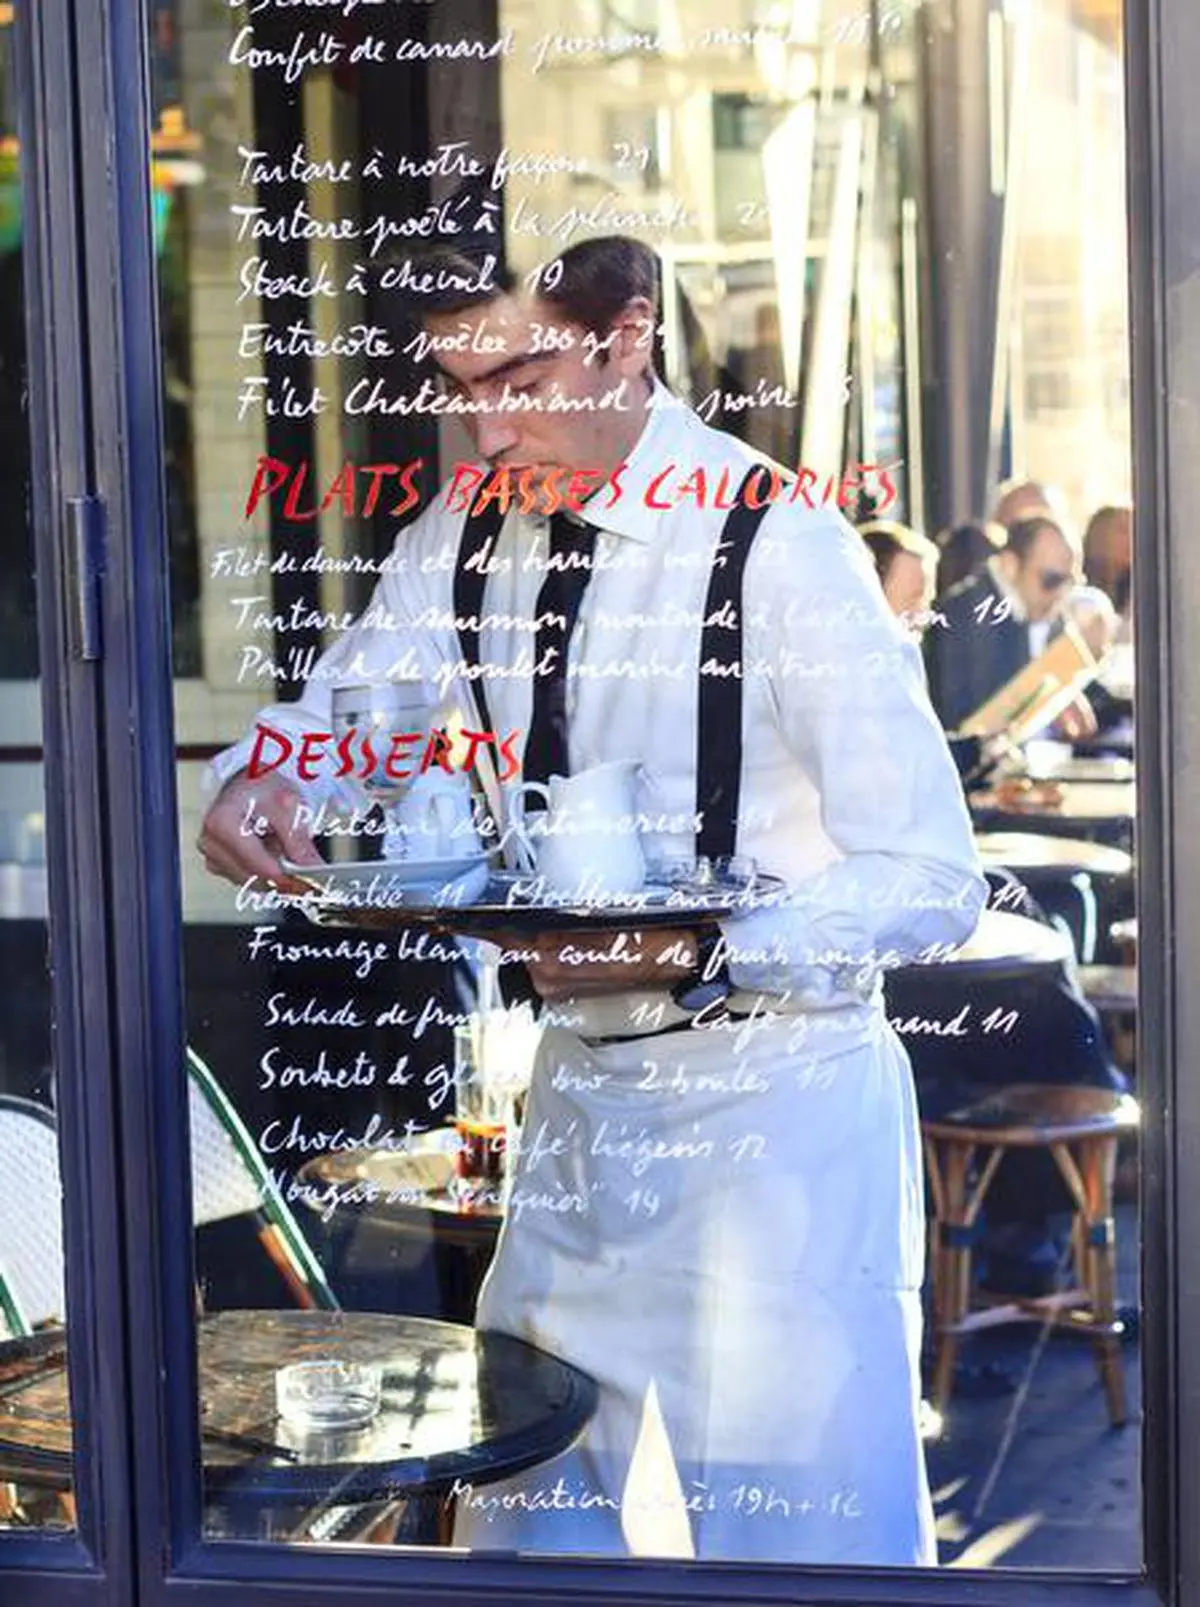 Confit de canard pommes
Tartare à notre façon 21
Tartare poêlé à la plancha
Steack à cheval 19
Entrecôte poêlée 300 gr
Filet Chateaubriand au poivre
PLATS BASSES CALORIES
Filet de daurade et des haricots verts 22
Tartare de saumon, moutarde à l'estragon 19
Paillard de poulet mariné au citron
DESSERTS
Le Plateau de patisseries 11
Crème brûlée 11 Moelleux au chocolat chaud 11
Fromage blanc au coulis de fruits rouges 11
Salade de fruits 11 Café gourmand 11
Sorbets & glaces bio 2 boules 11
Chocolat ou café liégeois 12
Nougat 14
Majoration après 19h + 1€